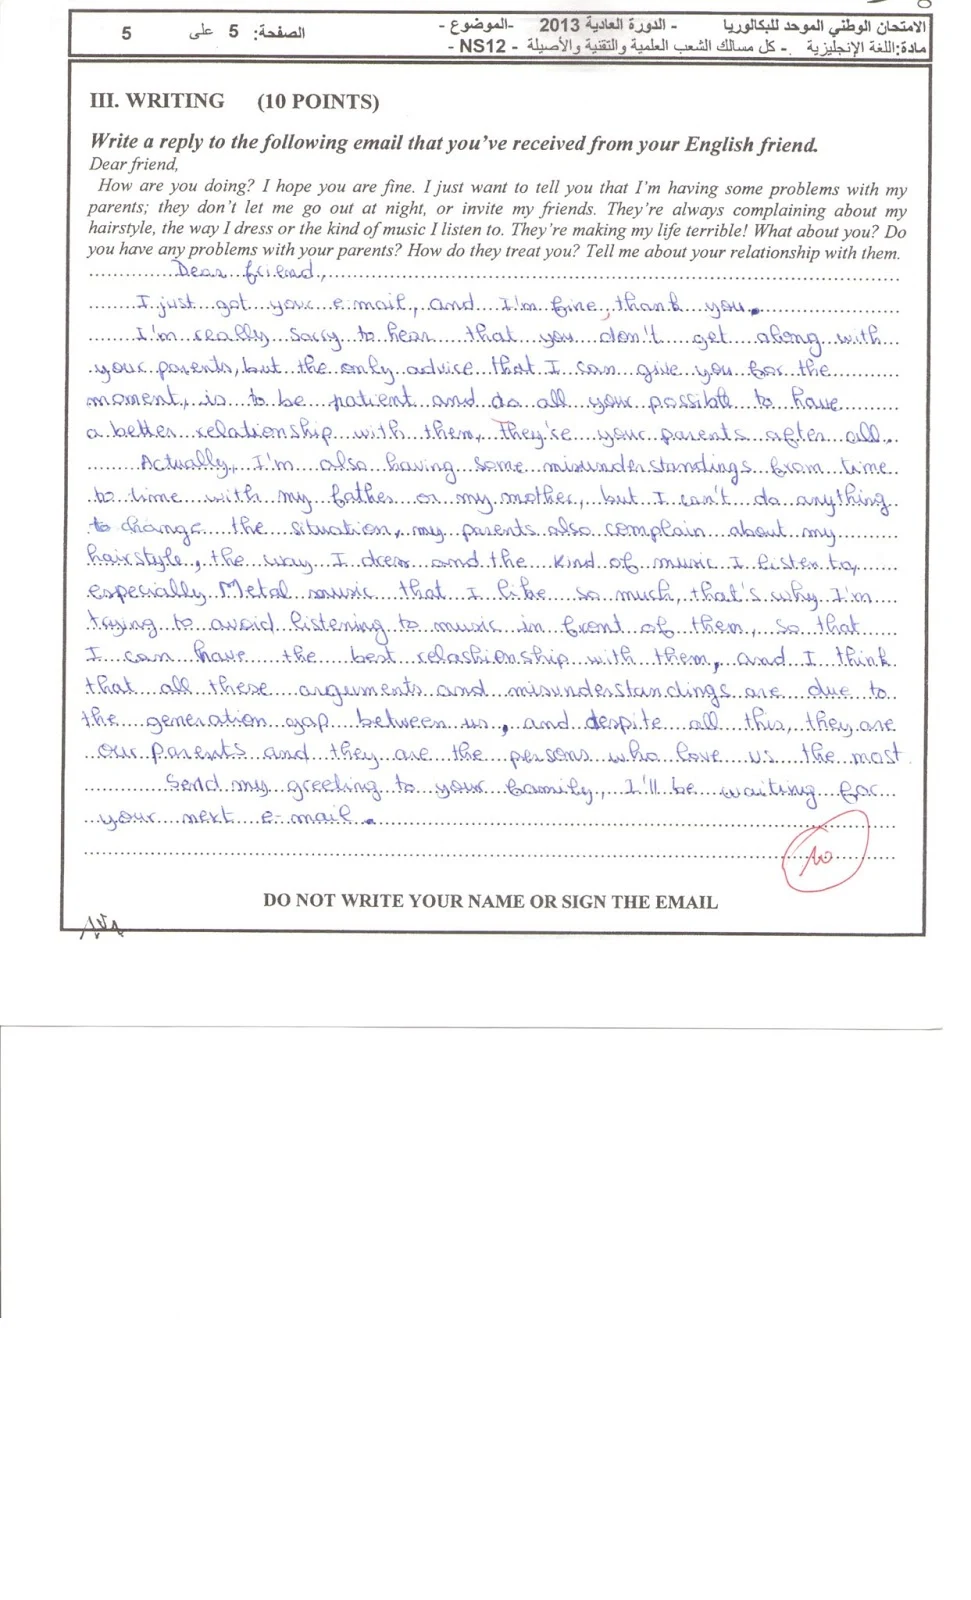 الامتحان الوطني الموحد للبكالوريا - الدورة العادية 2013 -الموضوع- الصفحة: 5 على 5
مادة:اللغة الإنجليزية -. كل مسالك الشعب العلمية والتقنية والأصيلة - NS12 -
III. WRITING (10 POINTS)
Write a reply to the following email that you've received from your English friend.
Dear friend,
How are you doing? I hope you are fine. I just want to tell you that I'm having some problems with my
parents; they don't let me go out at night, or invite my friends. They're always complaining about my
hairstyle, the way I dress or the kind of music I listen to. They're making my life terrible! What about you? Do
you have any problems with your parents? How do they treat you? Tell me about your relationship with them.
Dear friend,
I just got your e-mail, and I'm fine, thank you.
I'm really sorry to hear that you don't get along with
your parents, but the only advice that I can give you for the
moment, is to be patient and do all your possible to have
a better relationship with them, They're your parents after all.
Actually, I'm also having some misunderstandings from time
to time with my father or my mother, but I can't do anything
to change the situation, my parents also complain about my
hairstyle, the way I dress and the kind of music I listen to,
especially Metal music that I like so much, that's why I'm
trying to avoid listening to music in front of them, so that
I can have the best relashionship with them, and I think
that all these arguments and misunderstandings are due to
the generation gap between us, and despite all this, they are
our parents and they are the persons who love us the most.
Send my greeting to your family, I'll be waiting for
your next e-mail.
10
DO NOT WRITE YOUR NAME OR SIGN THE EMAIL